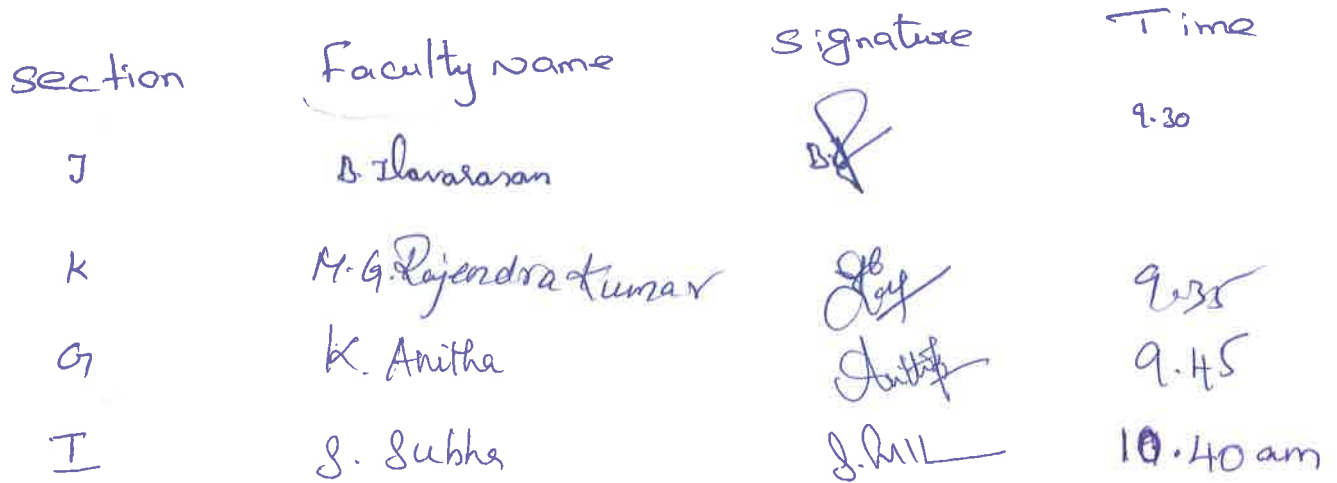 Section Faculty Name Signature Time
J B. Ilavarasan 9.30
K M.G. Rajendra Kumar 9.35
G K. Anitha Anitha 9.45
I S. Subha 10.40 am